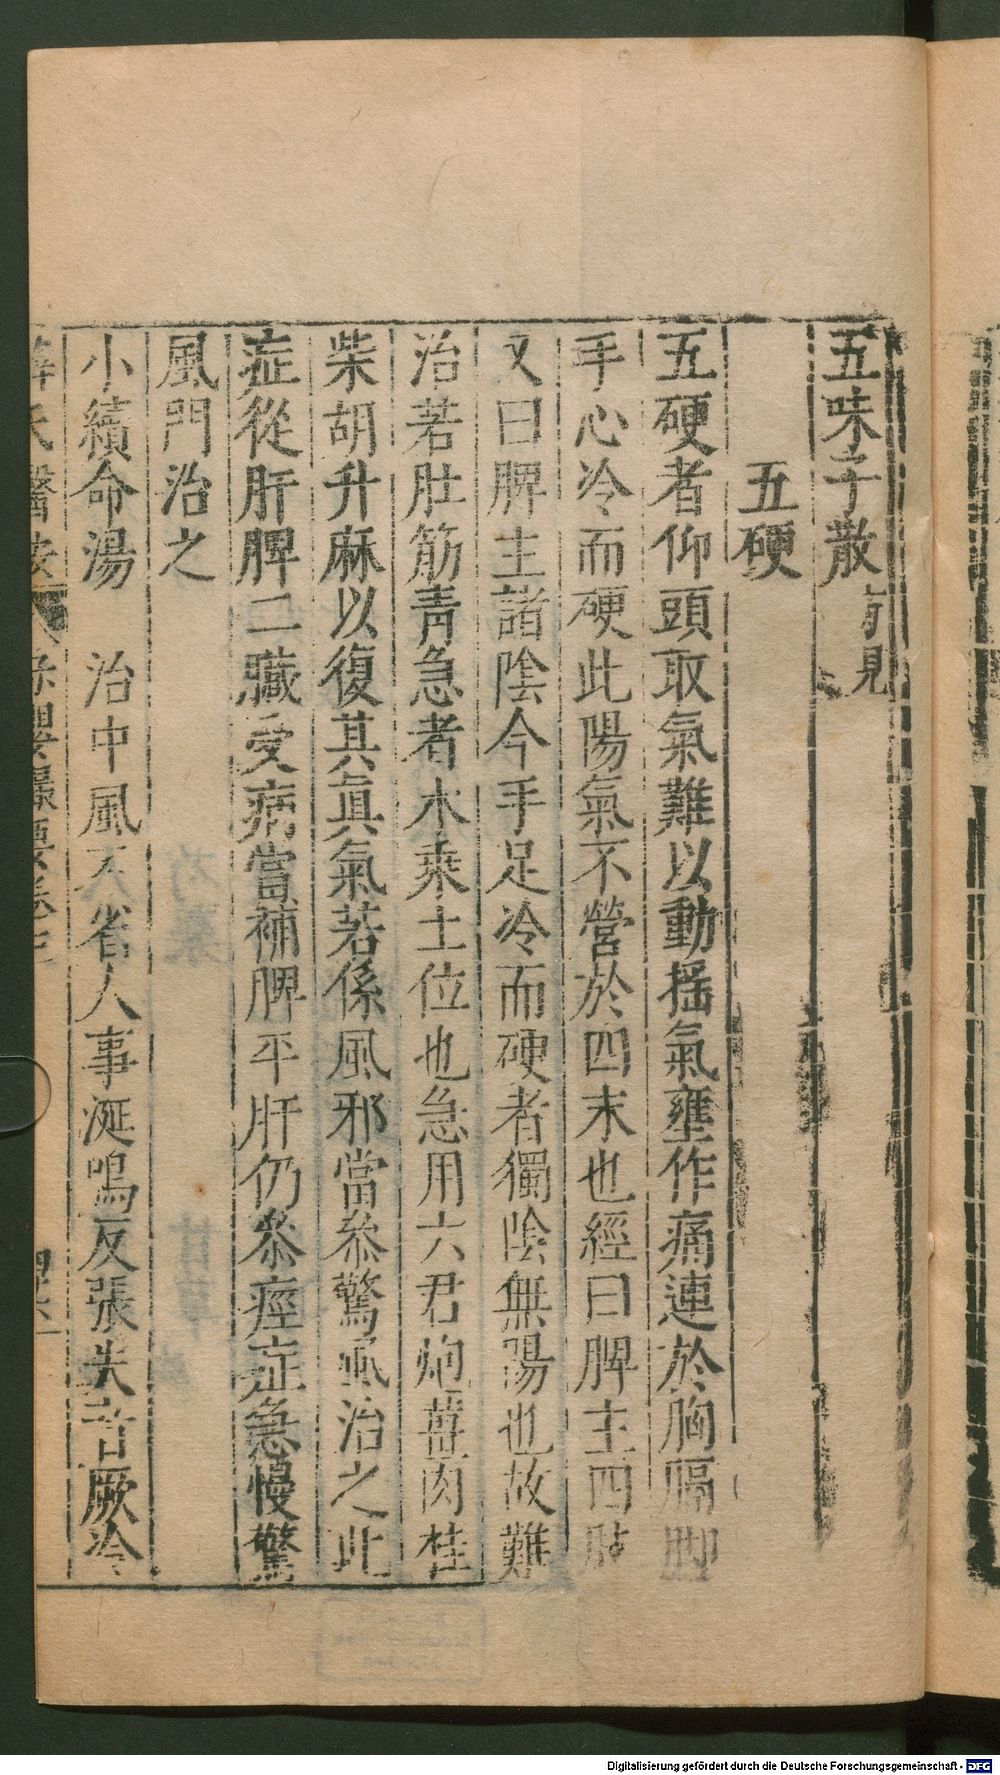 五味子散 見
五硬
五硬者仰頭取氣難以動揺氣壅作痛連於胸膈脚
手心冷而硬此陽氣不營於四末也經曰脾主四肢
又曰脾主諸陰今手足冷而硬者獨陰無陽也故難
治若肚筋靑急者木乘土位也急用六君炮薑肉桂
柴胡升麻以復其眞氣若係風邪當叅驚風治之此
症從肝脾二臟受病當補脾平肝仍叅痙症急慢驚
風門治之
小續命湯 治中風不省人事涎鳴反張失音厥冷
氏醫按 保嬰撮要卷三
Digitalisierung gefördert durch die Deutsche Forschungsgemeinschaft - DFG